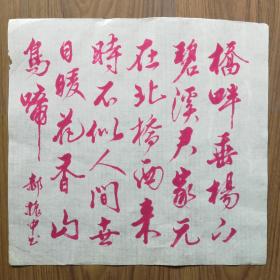 橋畔垂楊下
碧溪君家元
在北橋西来
時不似人間世
日暖花香山
鳥啼 郝振中书